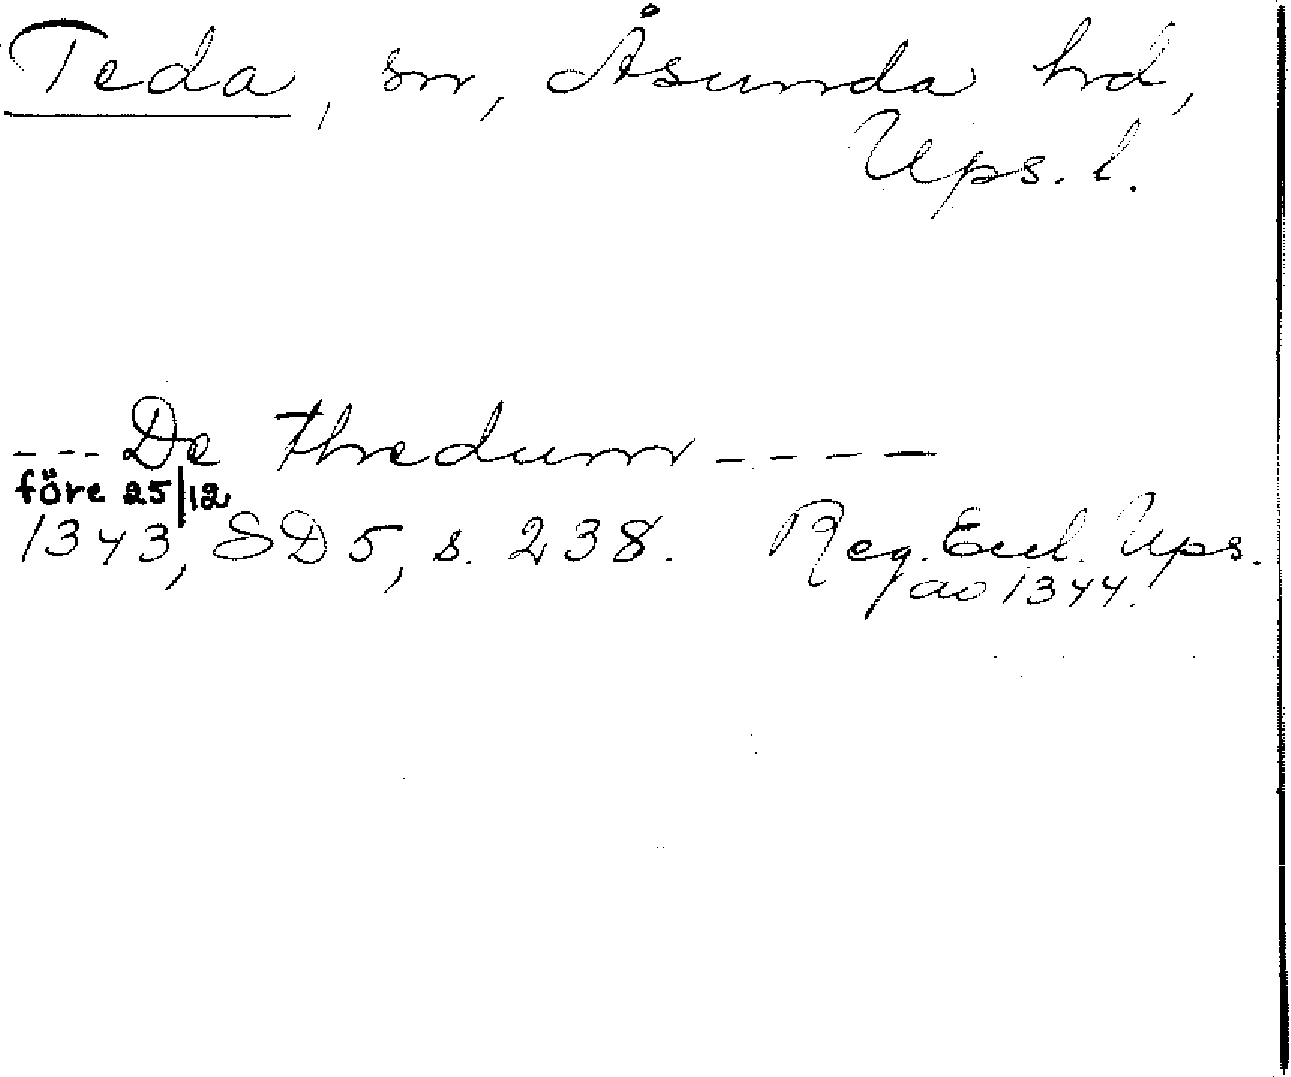 Teda, sn, Åsunda hd,
Ups. l.
--- De thredum ----
före 25/12
1343, SD 5, s. 238. Reg. Eccl. Ups.
ao 1344.